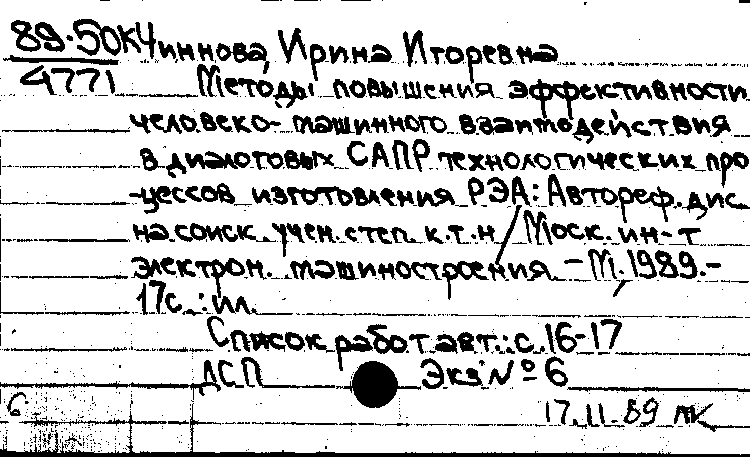 89-50к Чиннова, Ирина Игоревна
4771 Методы повышения эффективности
человеко-машинного взаимодействия
в диалоговых САПР технологических про
-цессов изготовления РЭА: Автореф. дис.
на соиск. учен. степ. к.т.н / Моск. ин-т
электрон. машиностроения. - М., 1989.-
17с.: ил.
Список работ авт.: с. 16-17
ДСП Экз № 6
6 17.11.89